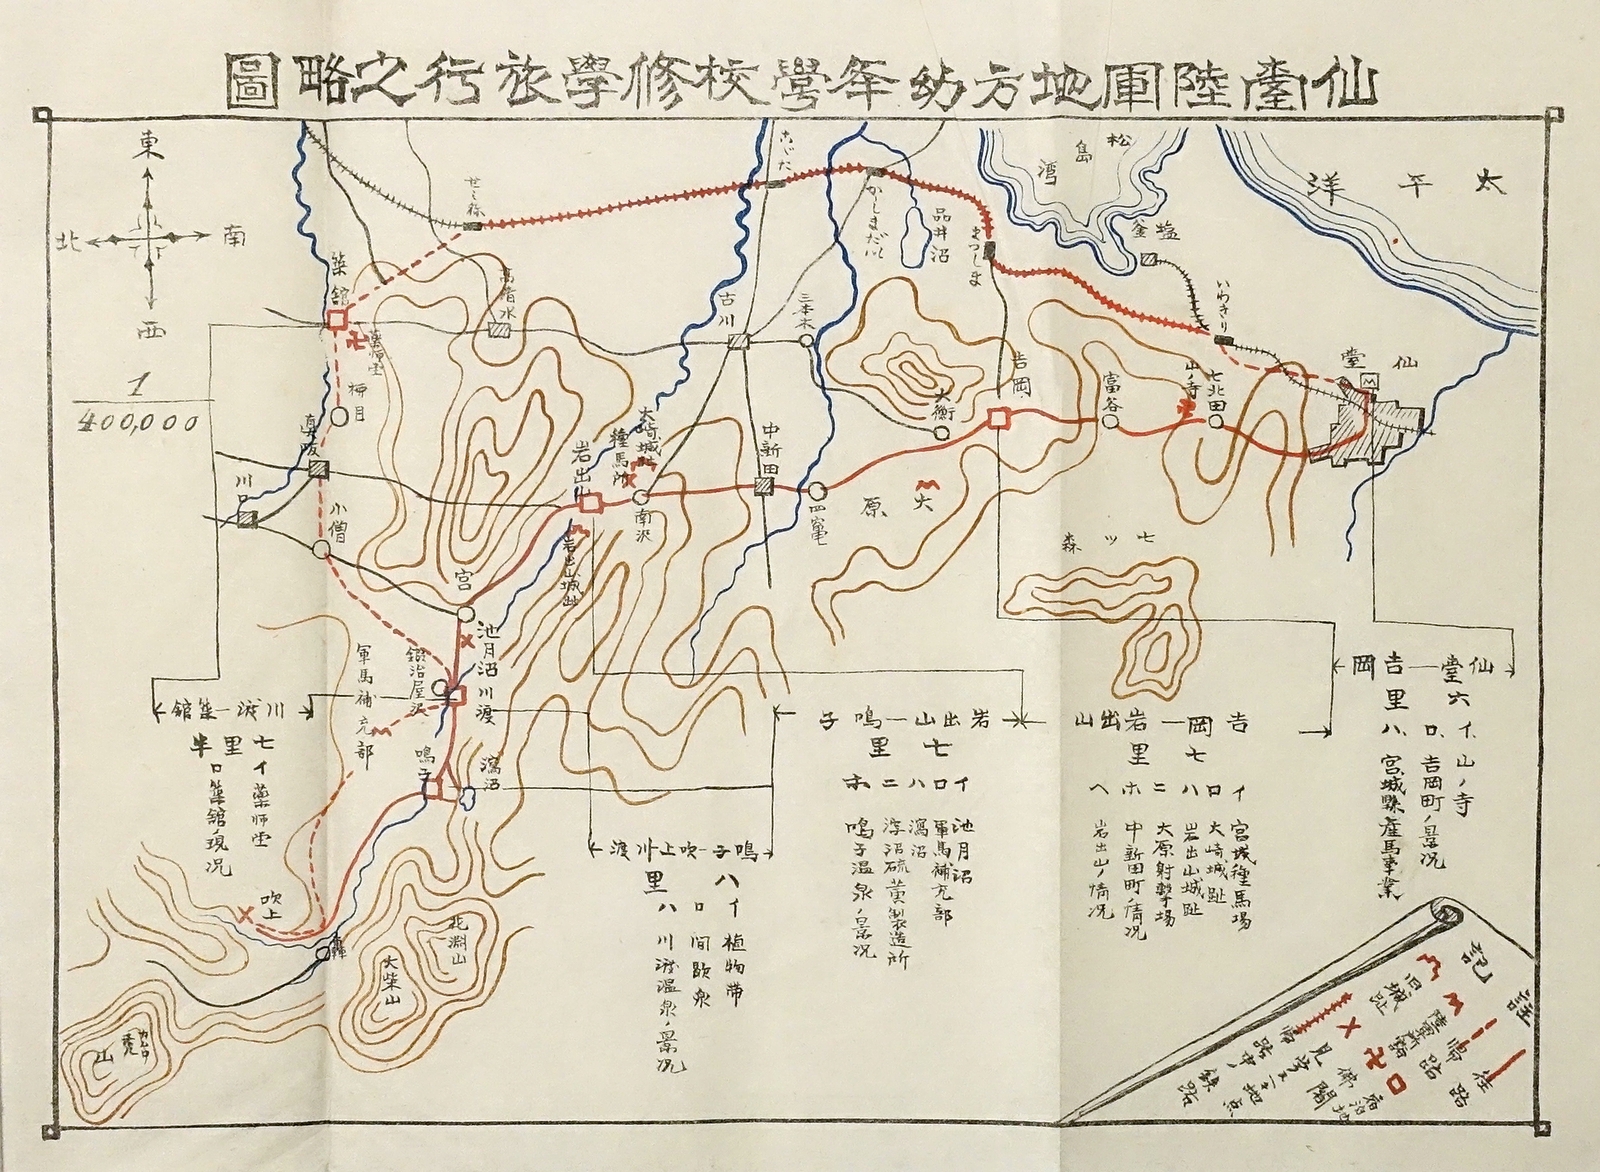 仙臺陸軍地方幼年學校修學旅行之略圖
東
北
南
西
1
400,000
太平洋
松島湾
塩釜
いわきり
まつしま
品井沼
かしまだい
こごた
せみね
築舘
高清水
古川
三本木
吉岡
大衡
富谷
山ノ寺
七北田
仙臺
薬師堂
柳目
真坂
川口
小僧
岩出山
大崎城趾
種馬所
南沢
中新田
四竈
大原
七ツ森
宮
岩出山城趾
池月沼
川渡
鍛治屋沢
軍馬補充部
鳴子
潟沼
吹上
花淵山
大柴山
禿山
カムロ
仙臺—吉岡
六里
イ、山ノ寺
ロ、吉岡町ノ景况
ハ、宮城縣産馬事業
吉岡—岩出山
七里
イ 宮城種馬場
ロ 大崎城趾
ハ 岩出山城趾
ニ 大原射撃場
ホ 中新田町ノ情况
ヘ 岩出山ノ情况
岩出山—鳴子
七里
イ 池月沼
ロ 軍馬補充部
ハ 潟沼
ニ 潟沼硫黄製造所
ホ 鳴子温泉ノ景况
鳴子—吹上—川渡
八里
イ 植物帯
ロ 間歇泉
ハ 川渡温泉ノ景况
川渡—築舘
七里半
イ 薬師堂
ロ 築舘ノ現况
註記
往路
帰路
陸軍所轄
旧城趾
宿泊地
佛閣
見学スベキ地点
帰路中ノ鉄路